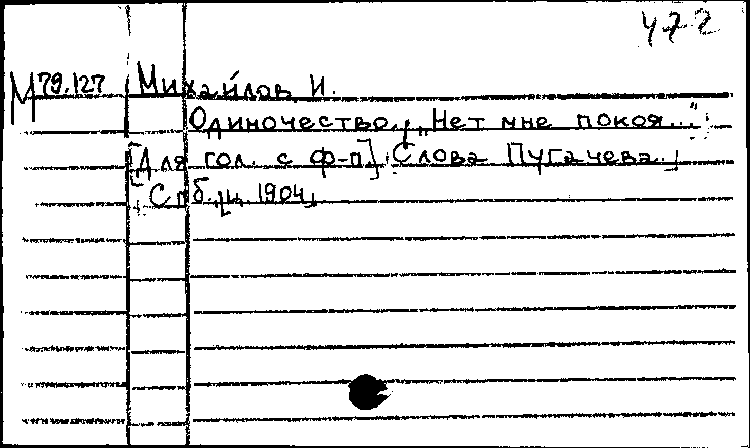 472
М79.127 Михайлов И.
Одиночество. „Нет мне покоя..."
[Для гол. с ф-п]. Слова Пугачева.
Спб., ц. 1904